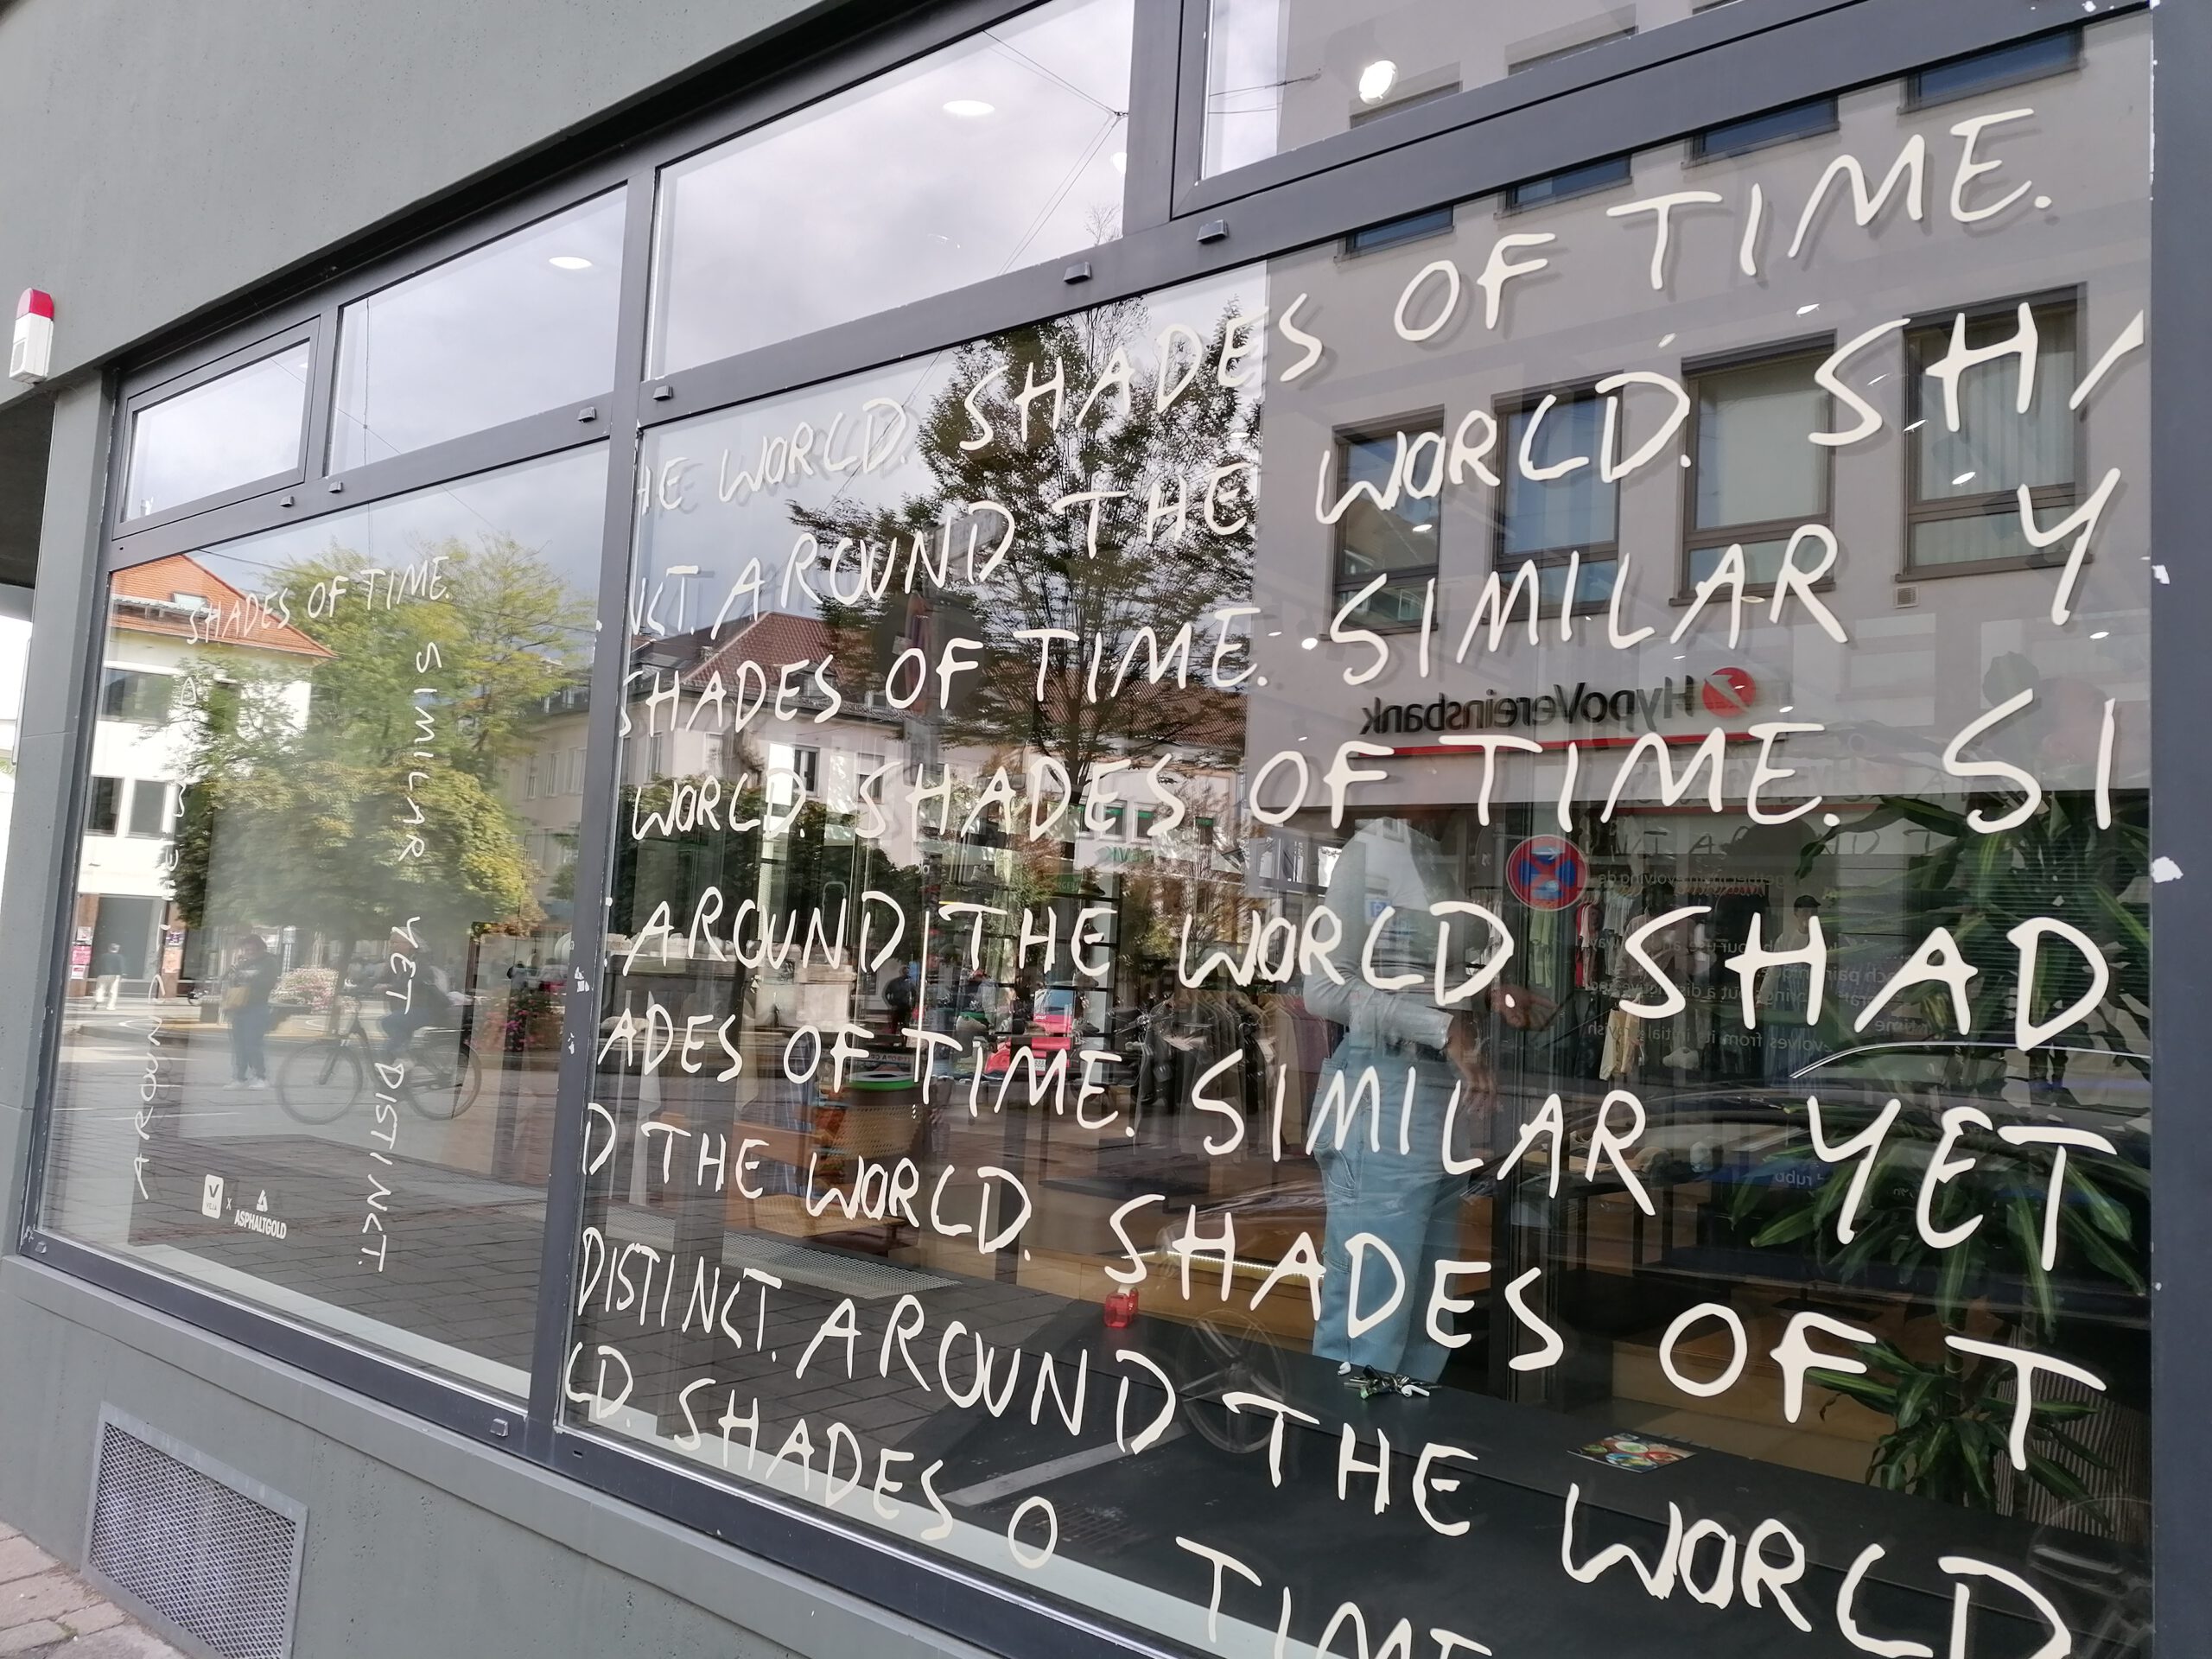 SHADES OF TIME.
SIMILAR YET DISTINCT.
AROUND
V
VEJA
x
ASPHALTGOLD
HE WORLD. SHADES OF TIME.
NCT. AROUND THE WORLD. SHA
SHADES OF TIME. SIMILAR Y
WORLD. SHADES OF TIME. SI
. AROUND THE WORLD. SHAD
ADES OF TIME. SIMILAR YET
D THE WORLD. SHADES OF T
DISTINCT. AROUND THE WORLD
LD. SHADES O TIME
HypoVereinsbank